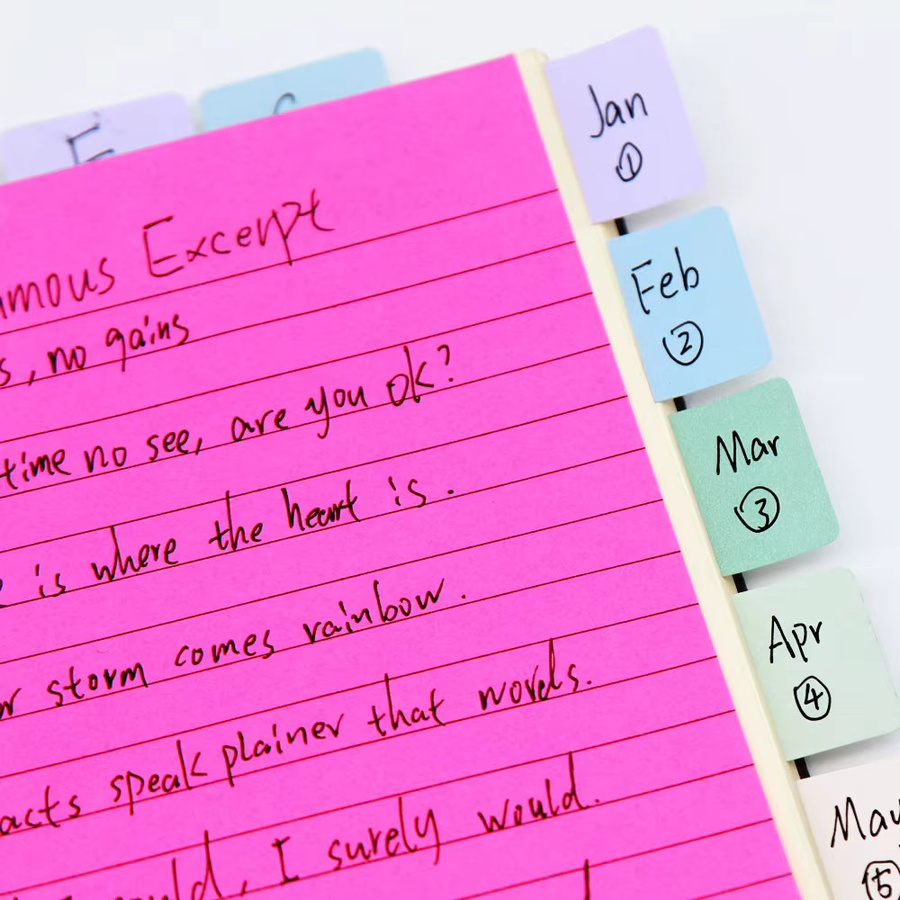 E
Excerpt
, no gains
time no see, are you ok?
is where the heart is.
storm comes rainbow.
acts speak plainer that words.
, I surely would.
Jan
①
Feb
②
Mar
③
Apr
④
May
⑤